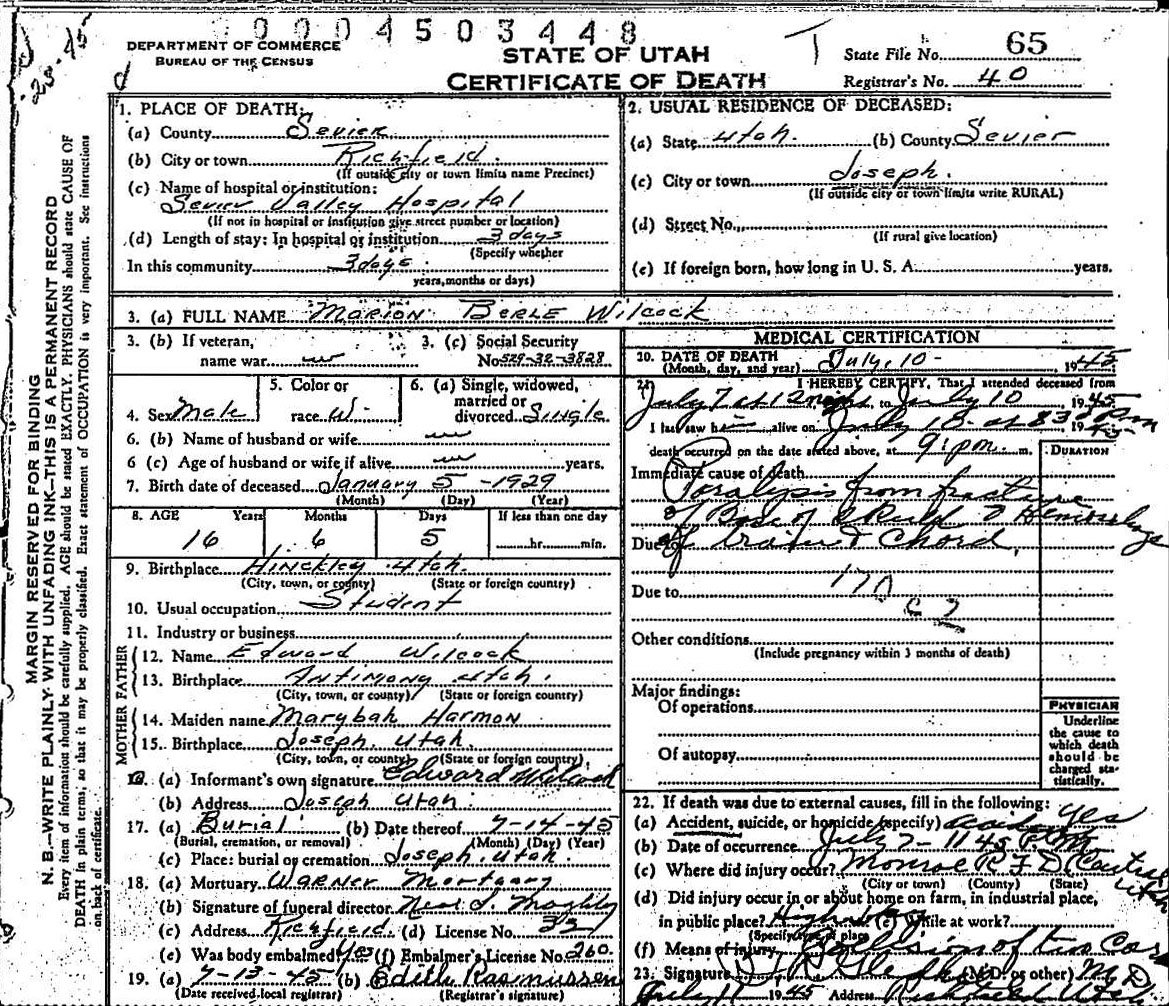 0004503448
DEPARTMENT OF COMMERCE
BUREAU OF THE CENSUS
STATE OF UTAH
CERTIFICATE OF DEATH
State File No. 65
Registrar's No. 40
MARGIN RESERVED FOR BINDING
N. B.—WRITE PLAINLY WITH UNFADING INK—THIS IS A PERMANENT RECORD
Every item of information should be carefully supplied. AGE should be stated EXACTLY. PHYSICIANS should state CAUSE OF
DEATH in plain terms, so that it may be properly classified. Exact statement of OCCUPATION is very important. See instructions
on back of certificate.
1. PLACE OF DEATH:
(a) County Sevier
(b) City or town Richfield.
(If outside city or town limits name Precinct)
(c) Name of hospital or institution:
Sevier Valley Hospital
(If not in hospital or institution give street number or location)
(d) Length of stay: In hospital or institution 3 days
(Specify whether
In this community 3 days.
years, months or days)
2. USUAL RESIDENCE OF DECEASED:
(a) State Utah. (b) County Sevier
(c) City or town Joseph.
(If outside city or town limits write RURAL)
(d) Street No.
(If rural give location)
(e) If foreign born, how long in U. S. A. years.
3. (a) FULL NAME Marion Berle Wilcock
3. (b) If veteran,
name war
3. (c) Social Security
No. 529-32-3828
4. Sex Male
5. Color or
race W.
6. (a) Single, widowed,
married or
divorced Single
6. (b) Name of husband or wife
6 (c) Age of husband or wife if alive years.
7. Birth date of deceased January 5 - 1929
(Month) (Day) (Year)
8. AGE Years Months Days If less than one day
16 6 5 hr. min.
9. Birthplace Hinckley Utah.
(City, town, or county) (State or foreign country)
10. Usual occupation Student
11. Industry or business
FATHER
12. Name Edward Wilcock
13. Birthplace Antimony Utah.
(City, town, or county) (State or foreign country)
MOTHER
14. Maiden name Marybah Harmon
15. Birthplace Joseph. Utah.
(City, town, or county) (State or foreign country)
16. (a) Informant's own signature Edward Wilcock
(b) Address Joseph Utah.
17. (a) Burial (b) Date thereof 7-14-45
(Burial, cremation, or removal) (Month) (Day) (Year)
(c) Place: burial or cremation Joseph. Utah.
18. (a) Mortuary Warner Mortuary
(b) Signature of funeral director
(c) Address Richfield. (d) License No. 321
(e) Was body embalmed? Yes (f) Embalmer's License No. 260.
19. (a) 7-13-45 (b) Edith Rasmussen
(Date received local registrar) (Registrar's signature)
MEDICAL CERTIFICATION
20. DATE OF DEATH July, 10 - 1945
(Month, day, and year)
21. I HEREBY CERTIFY, That I attended deceased from
July 7 at 12 night to July 10 1945
I last saw h alive on July 10 at 1945
death occurred on the date stated above, at 9: p.m. m.
DURATION
Immediate cause of death
Paralysis from fracture
of Base of Skull & Hemorrhage
Due to of brain & Chord.
Due to
170 c 2
Other conditions
(Include pregnancy within 3 months of death)
Major findings:
Of operations
Of autopsy
PHYSICIAN
Underline
the cause to
which death
should be
charged sta-
tistically.
22. If death was due to external causes, fill in the following:
(a) Accident, suicide, or homicide (specify) accident yes
(b) Date of occurrence July 7 - 11 45 P M
(c) Where did injury occur? Monroe R F D Utah
(City or town) (County) (State)
(d) Did injury occur in or about home on farm, in industrial place,
in public place? Highway (e) While at work?
(Specify type of place
(f) Means of injury Collision of two Cars
23. Signature (M.D. or other) M D
July 11 1945 Address Richfield Utah